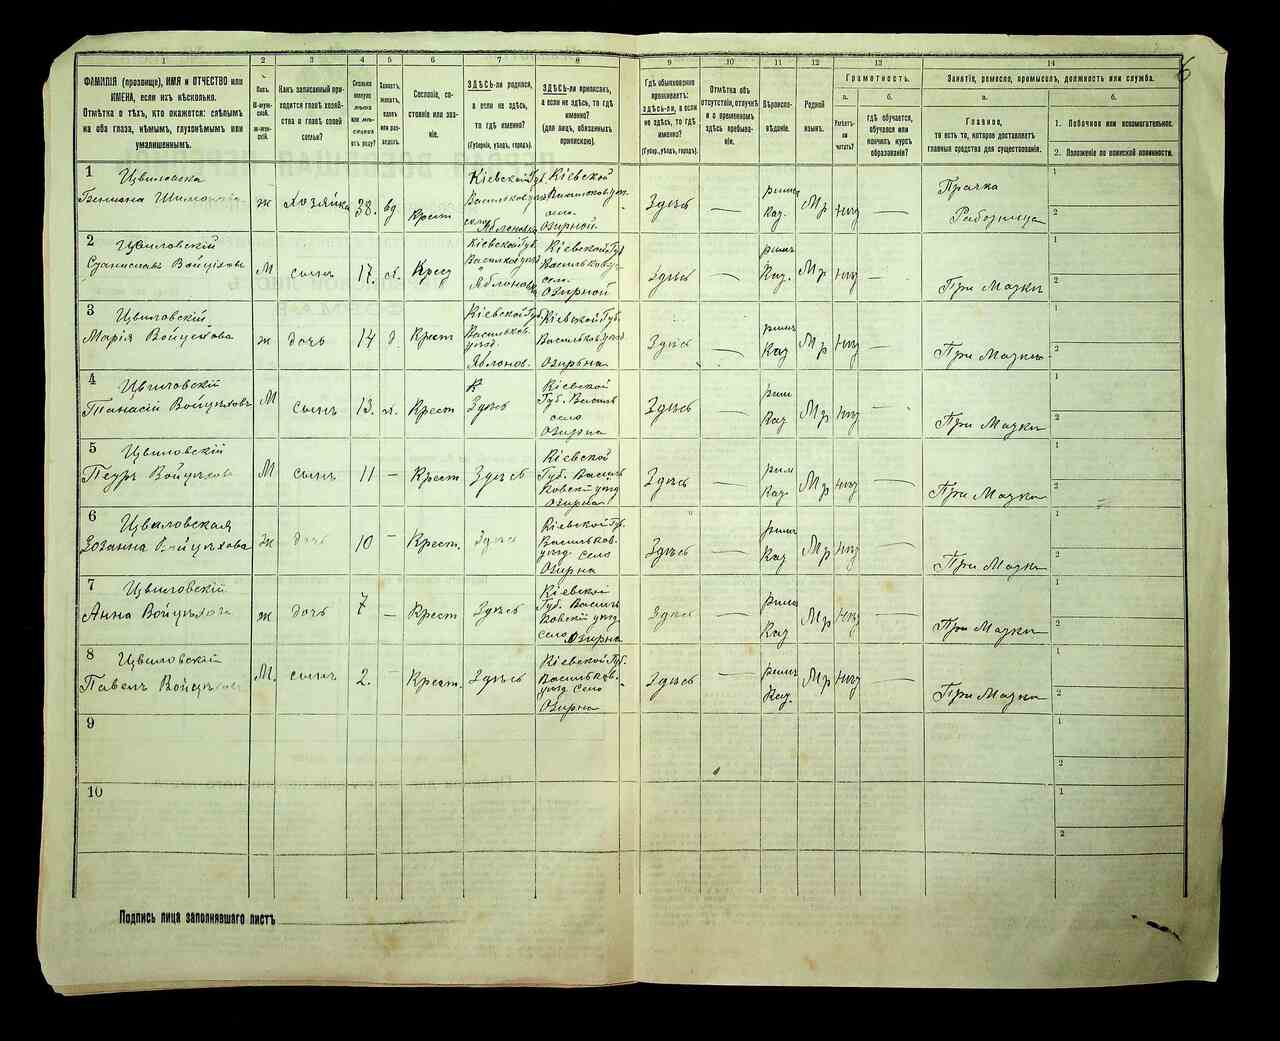 1 2 3 4 5 6 7 8 9 10 11 12 13 14
ФАМИЛІЯ (прозвище), ИМЯ и ОТЧЕСТВО или
ИМЕНА, если ихъ нѣсколько.
Отмѣтка о тѣхъ, кто окажется: слѣпымъ
на оба глаза, нѣмымъ, глухонѣмымъ или
умалишеннымъ.
Полъ.
М-муж-
ской.
Ж-жен-
скій.
Какъ записанный при-
ходится главѣ хозяй-
ства и главѣ своей
семьи?
Сколько
минуло
лѣтъ
или мѣ-
сяцевъ
отъ роду?
Холостъ,
женатъ,
вдовъ
или раз-
веденъ.
Сословіе, со-
стояніе или зва-
ніе.
ЗДѢСЬ-ли родился,
а если не здѣсь,
то гдѣ именно?
(Губернія, уѣздъ, городъ).
ЗДѢСЬ-ли приписанъ,
а если не здѣсь, то гдѣ
именно?
(для лицъ, обязанныхъ
припискою).
Гдѣ обыкновенно
проживаетъ:
ЗДѢСЬ-ли, а если
не здѣсь, то гдѣ
именно?
(Губер., уѣздъ, городъ).
Отмѣтка объ
отсутствіи, отлучкѣ
и о временномъ
здѣсь пребыва-
ніи.
Вѣроиспо-
вѣданіе.
Родной
языкъ.
Грамотность.
а.
Умѣетъ-
ли
читать?
б.
гдѣ обучается,
обучался или
кончилъ курсъ
образованія?
Занятіе, ремесло, промыселъ, должность или служба.
а.
Главное,
то есть то, которое доставляетъ
главныя средства для существованія.
б.
1. Побочное или вспомогательное.
2. Положеніе по воинской повинности.
6
1 Цвиловска
ж Хозяйка 38. вд Крест
Кіевской Губ.
Васильков узд
село Яблоновка
Кіевской
Васильков уз.
село.
Озирной.
Здѣсь — рим. Кат. — Прачка
Работница
1
2
2 Цвиловскій
Станиславъ Войцѣховъ
М сынъ 17. х. Крест
Кіевской Губ.
Васильков узд
Яблоновка
Кіевской Губ
Васильков у.
село.
Озирной
Здѣсь — рим Кат. — При Матки
1
2
3 Цвиловскій
Марія Войцѣхова
ж дочь 14 д. Крест
Кіевской Губ.
Васильков.
узд.
Яблонов.
Кіевской Губ.
Васильков узд
Озирна
Здѣсь — рим Кат — При Матки
1
2
4 Цвиловскій
М сынъ 13. х. Крест
Здѣсь
Кіевской
Губ. Василь
село
Озирна
Здѣсь — рим Кат — При Матки
1
2
5 Цвиловскій
Петръ Войцѣхов
М сынъ 11 — Крест Здѣсь
Кіевской
Губ. Василь
ковскій узд
Озирна
Здѣсь — рим Кат. — При Матки
1
2
6 Цвиловская
Зозанна Войцѣхова
ж дочь 10 — Крест. Здѣсь
Кіевской Губ.
Васильков.
узд. Село
Озирна
Здѣсь — рим Кат — При Матки
1
2
7 Цвиловскій
Анна Войцѣхова
ж дочь 7 — Крест Здѣсь
Кіевской
Губ. Василь
ковскій узд
село Озирна
Здѣсь — рим Кат — При Матки
1
2
8 Цвиловскій
Павелъ Войцѣхов
М. сынъ 2. — Крест. Здѣсь
Кіевской Губ.
Васильков.
узд Село
Озирна
Здѣсь — рим Кат. — При Матки
1
2
9
1
2
10
1
2
Подпись лица заполнявшаго листъ